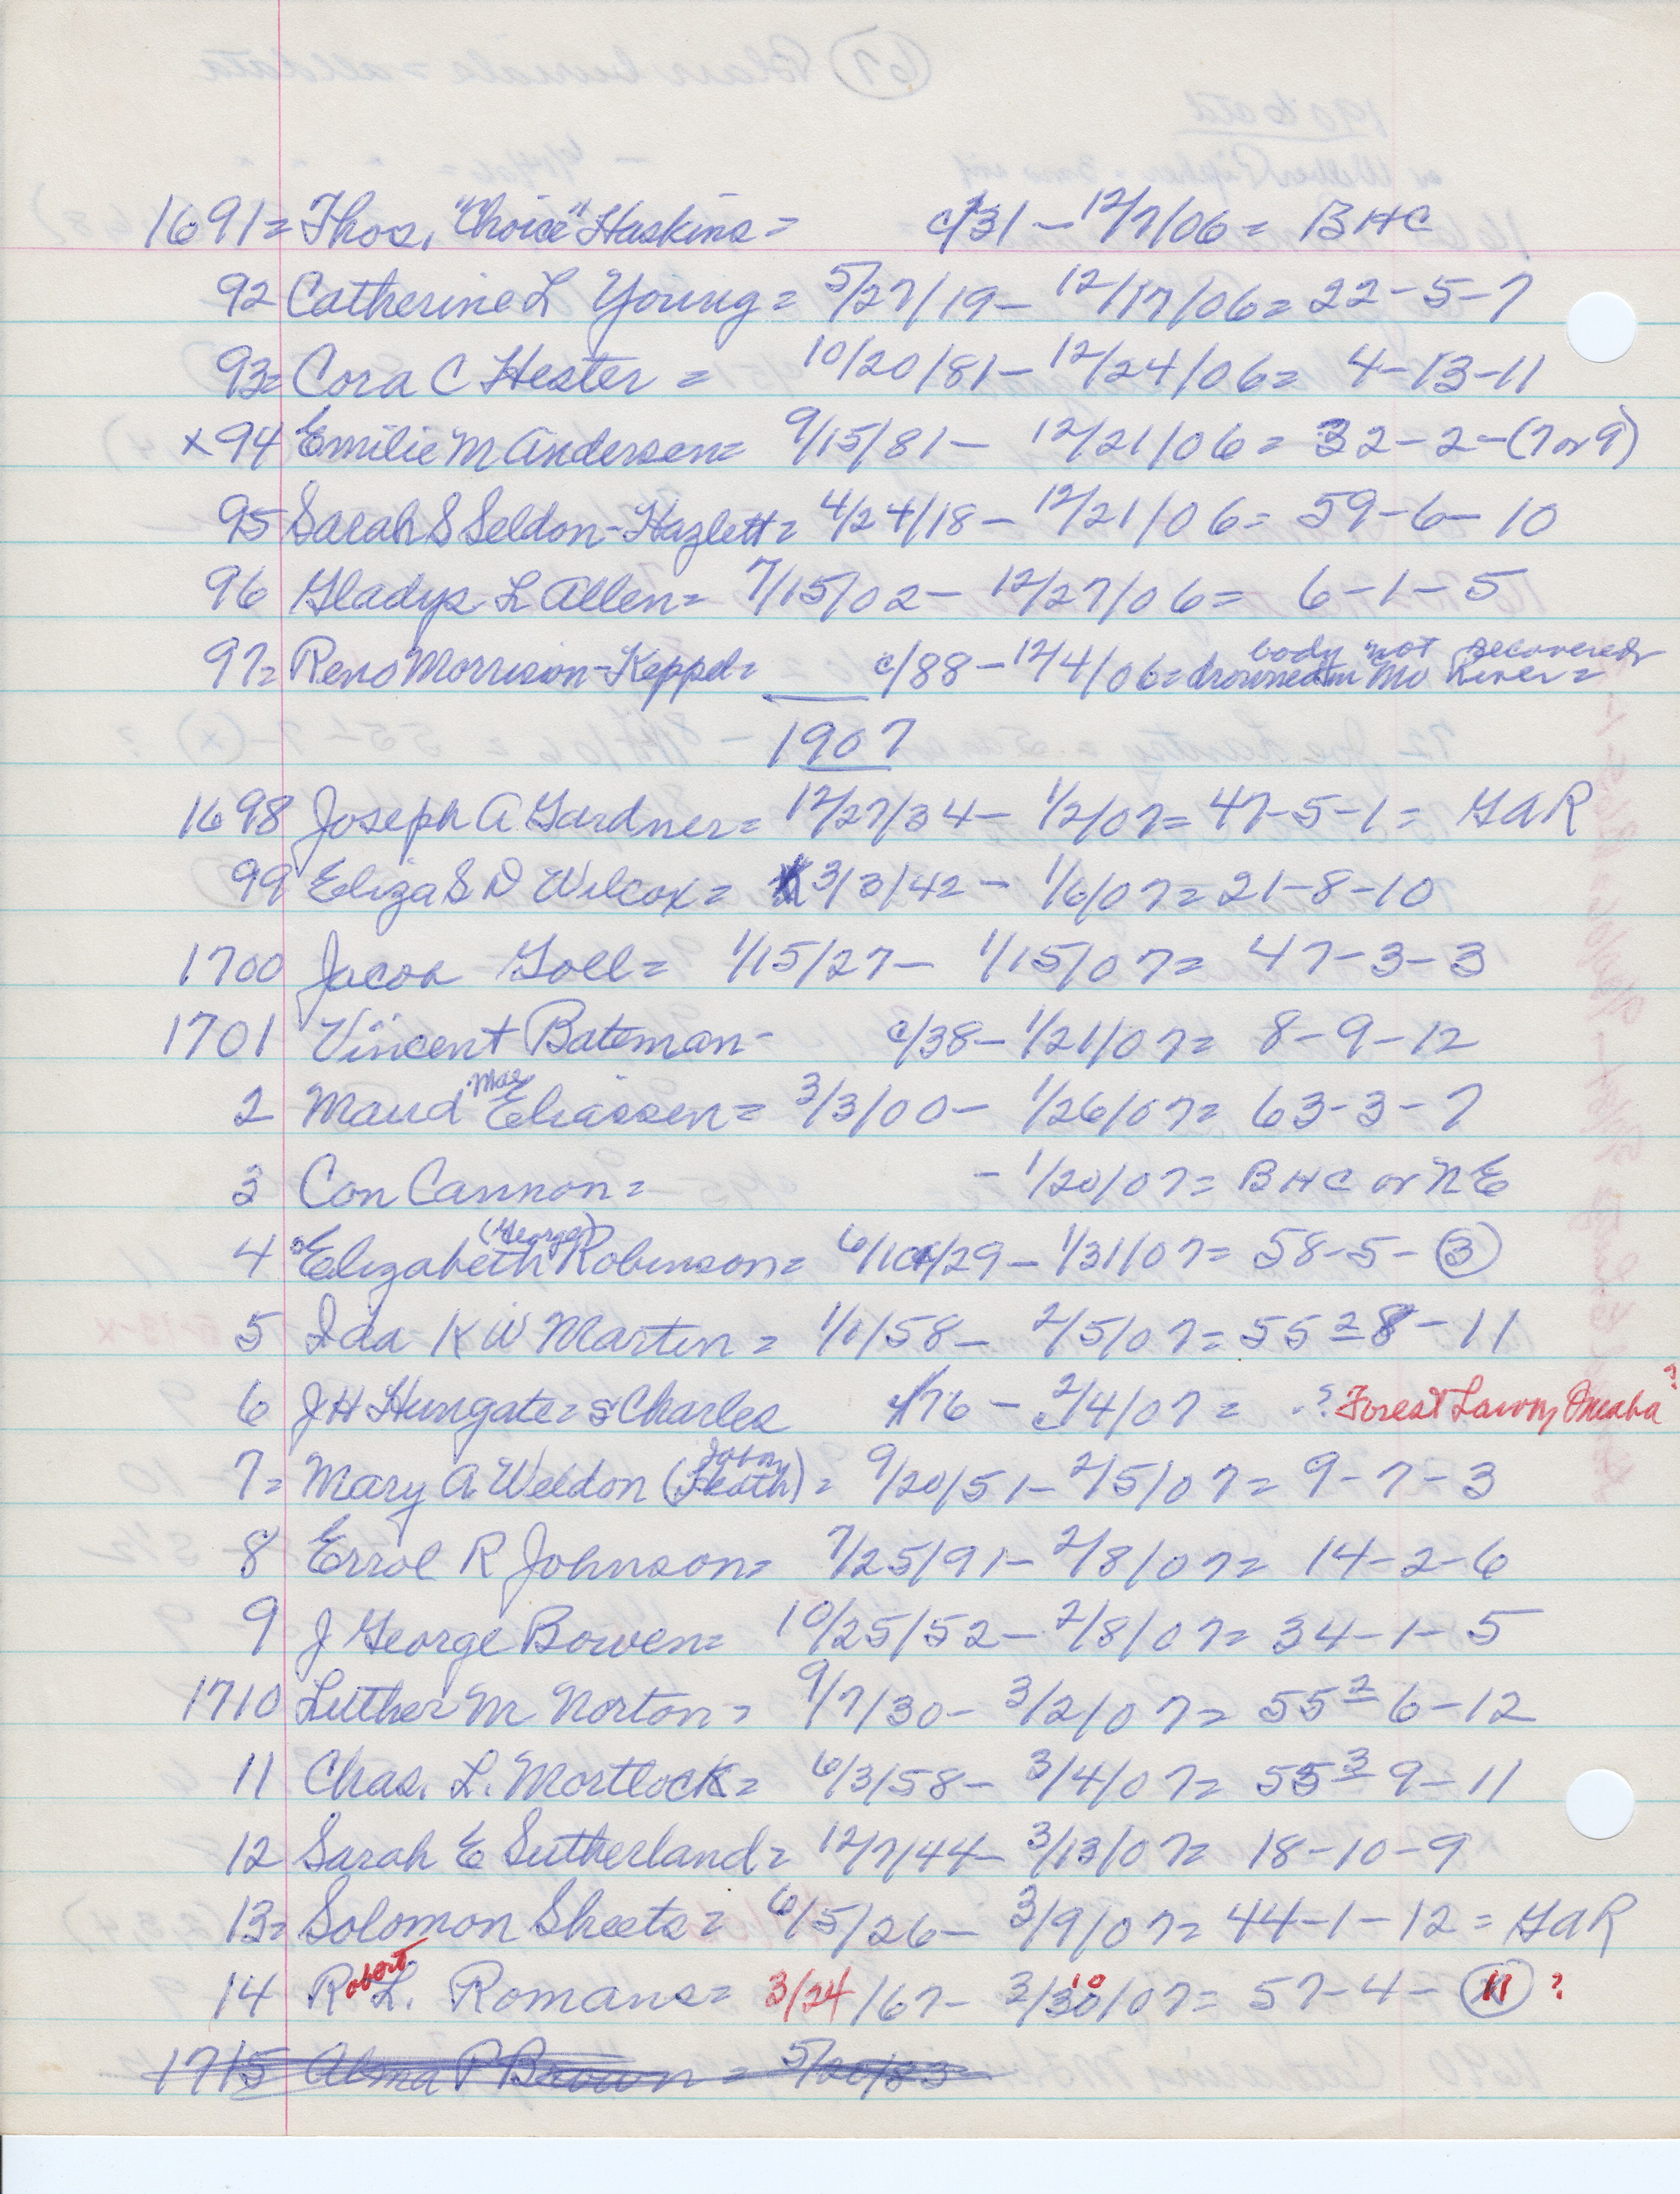 1691= Thos. "Choice" Haskins = c/31 - 12/7/06 = BHC
92 Catherine L Young = 5/27/19 - 12/17/06 = 22-5-7
93= Cora C Hester = 10/20/81 - 12/24/06 = 4-13-11
x 94 Emilie M Andersen = 9/15/81 - 12/21/06 = 32-2-(7 or 9)
95 Sarah S Seldon-Hazlett = 4/24/18 - 12/21/06 = 59-6-10
96 Gladys L Allen = 7/15/02 - 12/27/06 = 6-1-5
97= Reno Morrison-Keppel = c/88 - 12/4/06 = drowned in Mo River = body not recovered
1907
1698 Joseph A Gardner = 12/27/34 - 1/2/07 = 47-5-1 = GAR
99 Eliza S D Wilcox = 3/3/42 - 1/6/07 = 21-8-10
1700 Jacob Goll = 1/15/27 - 1/15/07 = 47-3-3
1701 Vincent Bateman - c/38 - 1/21/07 = 8-9-12
2 Maud Mae Eliassen = 3/3/00 - 1/26/07 = 63-3-7
3 Con Cannon = - 1/20/07 = BHC or NE
4 Elizabeth (George) Robinson = 6/10/29 - 1/31/07 = 58-5-(3)
5 Ida K W Martin = 1/1/58 - 2/5/07 = 55 2 8-11
6 J H Hungate = s Charles /76 - 2/4/07 = ? Forest Lawn, Omaha ?
7= Mary A Weldon (John Heath) = 9/20/51 - 2/5/07 = 9-7-3
8 Errol R Johnson = 7/25/91 - 2/8/07 = 14-2-6
9 J George Bowen = 10/25/52 - 2/8/07 = 34-1-5
1710 Luther M Norton = 9/7/30 - 3/2/07 = 55 2 6-12
11 Chas. L. Mortlock = 6/3/58 - 3/4/07 = 55 3 9-11
12 Sarah E Sutherland = 12/7/44 - 3/13/07 = 18-10-9
13= Solomon Sheets = 6/5/26 - 3/9/07 = 44-1-12 = GAR
14 Robert L. Romans = 3/24/67 - 3/10/07 = 57-4-(11) ?
1715 Alma P Brown = 5/20/83